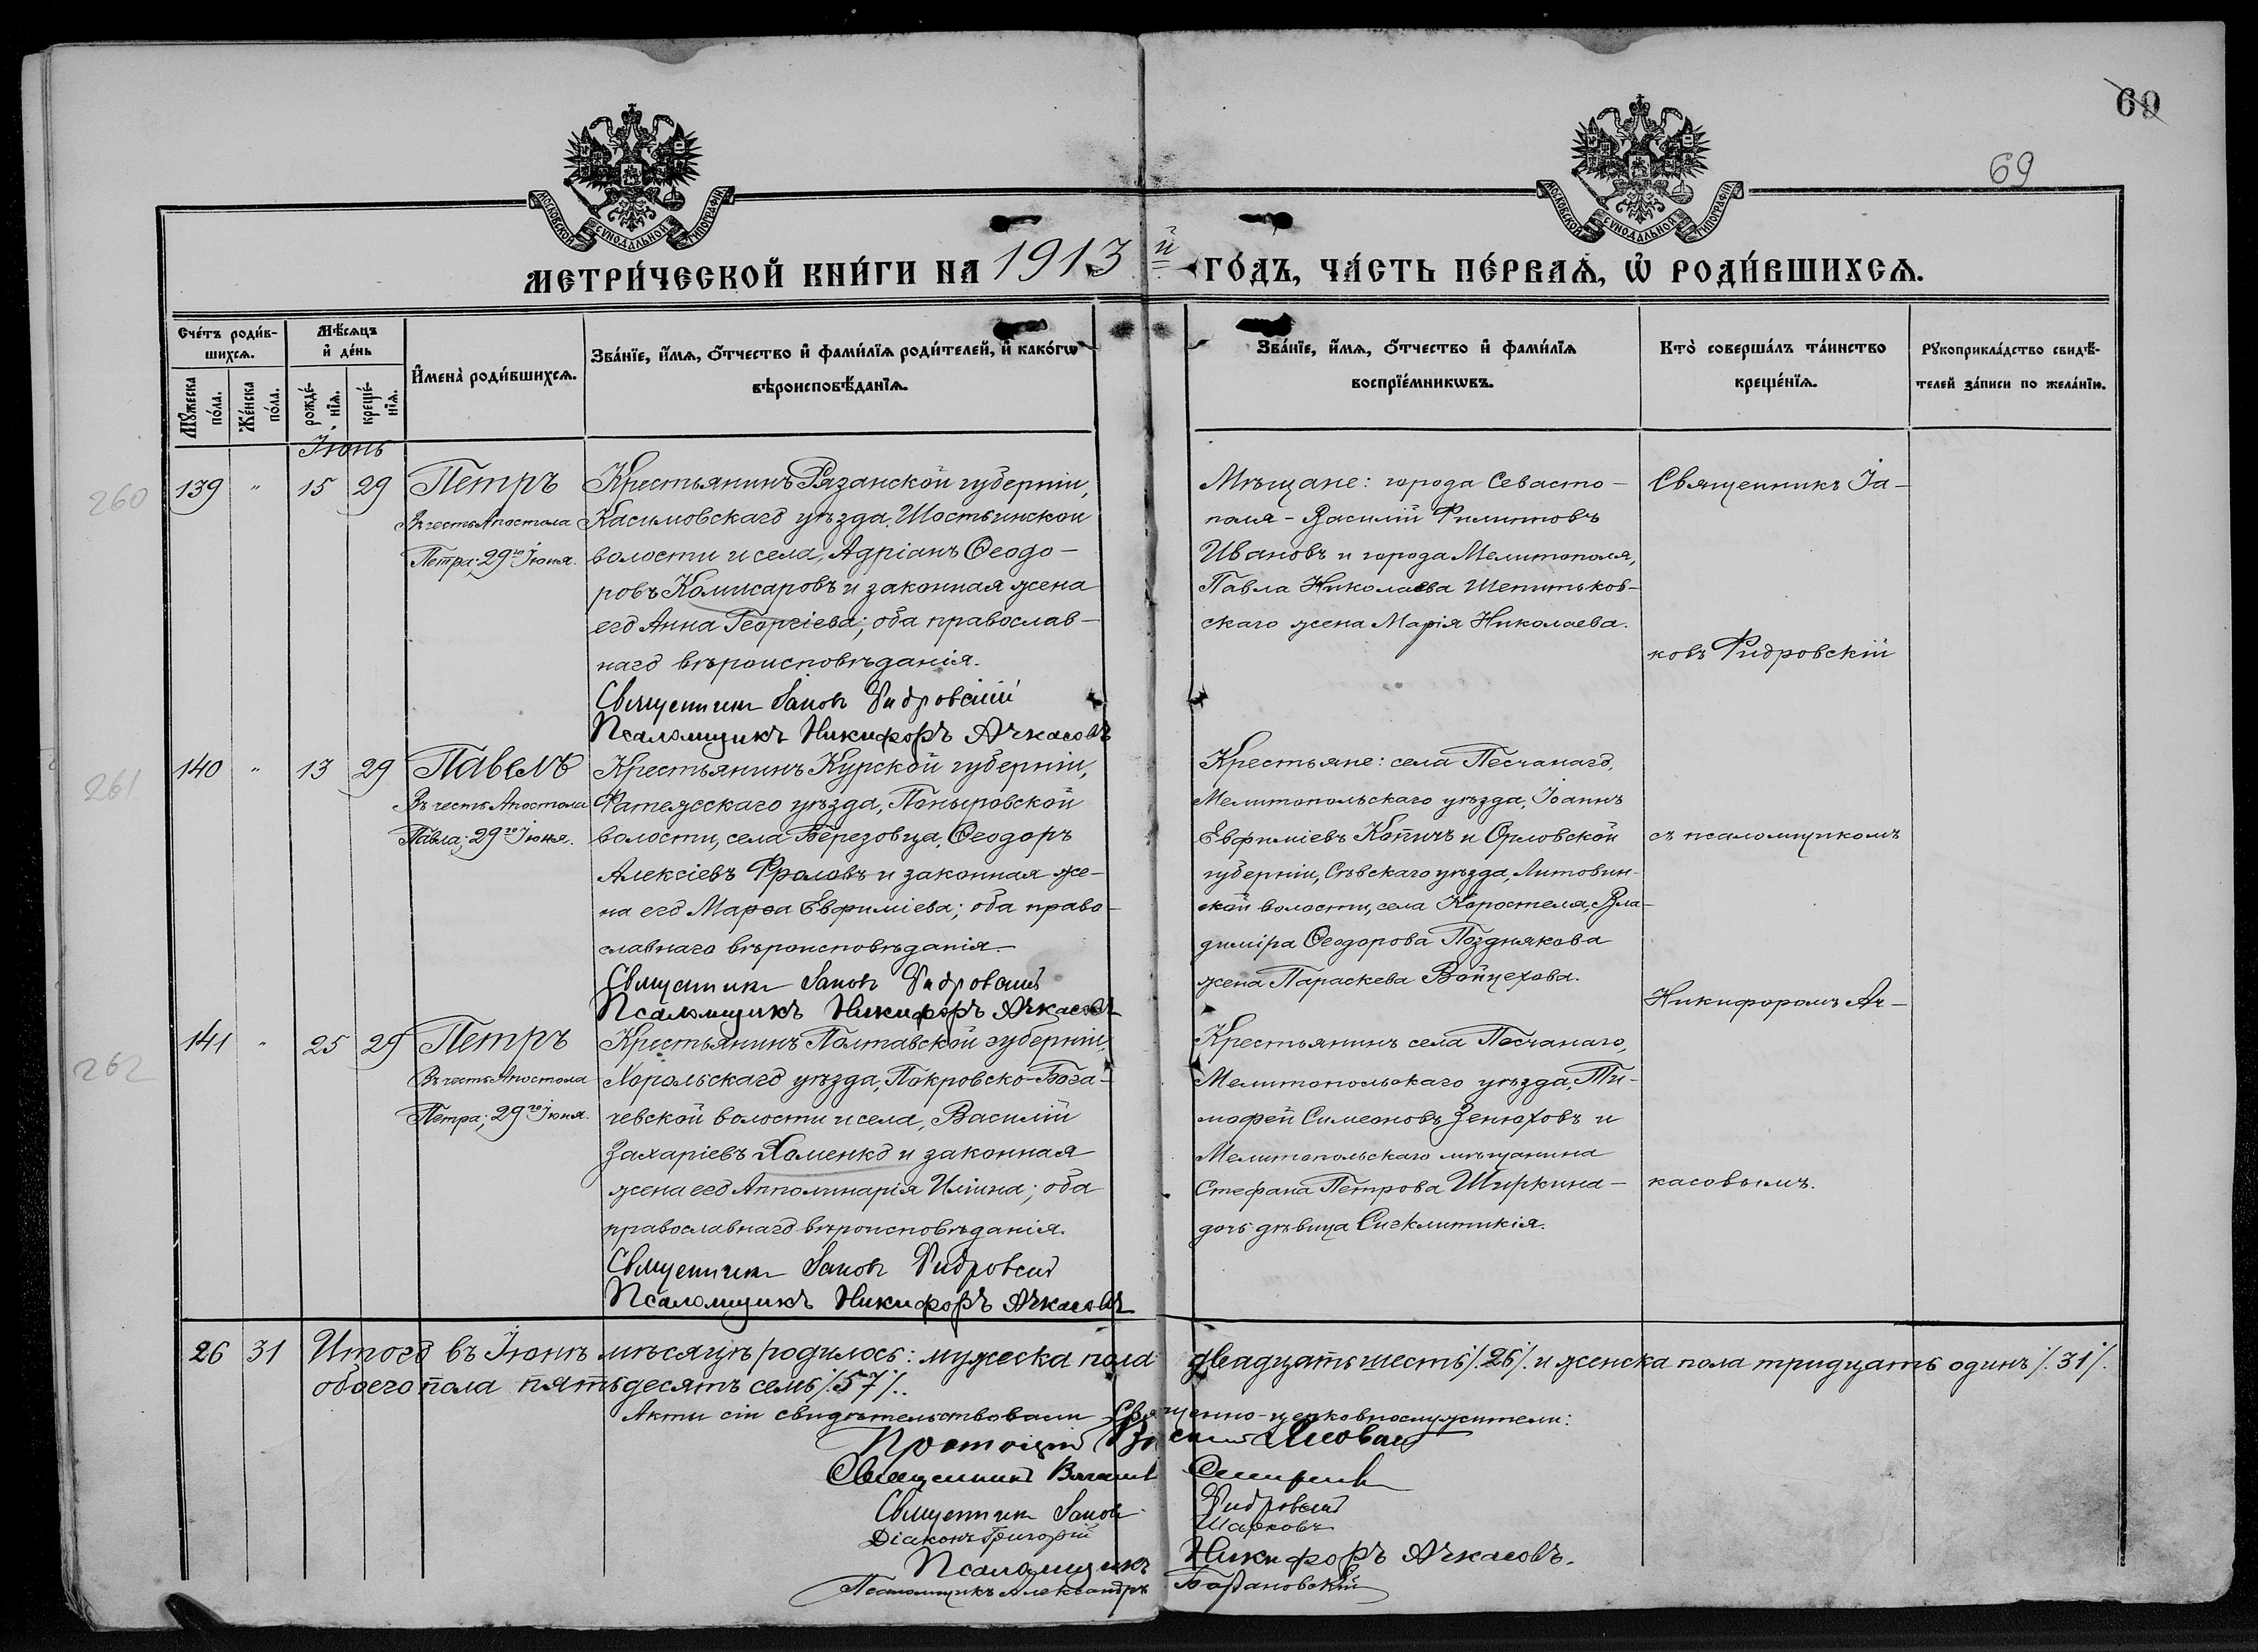 69
69
МОСКОВСКОЙ СѴНОДАЛЬНОЙ ТИПОГРАФІИ
МОСКОВСКОЙ СѴНОДАЛЬНОЙ ТИПОГРАФІИ
МЕТРИ́ЧЕСКОЙ КНИ́ГИ НА 1913 й ГО́ДЪ, ЧА́СТЬ ПЕ́РВАѦ, Ѡ҆ РОДИ́ВШИХСѦ.
Сче́тъ роди́в-
шихсѧ.
Мꙋ́жеска
по́ла.
Же́нска
по́ла.
Мѣ́сѧцъ
и҆ де́нь
рожде́-
нїѧ.
креще́-
нїѧ.
И҆мена̀ роди́вшихсѧ.
Зва́нїе, и҆́мѧ, ѻ҆́тчество и҆ фами́лїѧ роди́телей, и҆ како́гѡ
вѣроисповѣ́данїѧ.
Зва́нїе, и҆́мѧ, ѻ҆́тчество и҆ фами́лїѧ
воспрїе́мникѡвъ.
Кто̀ соверша́лъ та́инство
креще́нїѧ.
Рꙋкоприкла́дство свидѣ́-
телей за́писи по жела́нїю.
Іюнь
260
139 " 15 29
Петръ
Въ честь Апостола
Петра; 29го Іюня.
Крестьянинъ Рязанской губерніи,
Касимовскаго уѣзда, Шостьинской
волости и села, Адріанъ Ѳеодо-
ровъ Комисаровъ и законная жена
его Анна Георгіева; оба православ-
наго вѣроисповѣданія.
Священникъ Іаковъ Фидровскій
Псаломщикъ Никифоръ Ачкасовъ
Мѣщане: города Севасто-
поля - Василій Филипповъ
Ивановъ и города Мелитополя,
Павла Николаева Шепитьков-
скаго жена Марія Николаева.
Священникъ Іа-
ковъ Фидровскій
261
140 " 13 29
Павелъ
Въ честь Апостола
Павла; 29го Іюня.
Крестьянинъ Курской губерніи,
Фатежскаго уѣзда, Поныровской
волости, села Березовца, Ѳеодоръ
Алексіевъ Фроловъ и законная же-
на его Марѳа Евфиміева; оба право-
славнаго вѣроисповѣданія.
Священникъ Іаковъ Фидровскій
Псаломщикъ Никифоръ Ачкасовъ
Крестьяне: села Песчанаго,
Мелитопольскаго уѣзда, Іоаннъ
Евфиміевъ Копичъ и Орловской
губерніи, Сѣвскаго уѣзда, Литовин-
ской волости, села Коростеля, Вла-
диміра Ѳеодорова Позднякова
жена Параскева Войцехова.
съ псаломщикомъ
Никифоромъ Ач-
262
141 " 25 29
Петръ
Въ честь Апостола
Петра; 29го Іюня.
Крестьянинъ Полтавской губерніи,
Хорольскаго уѣзда, Покровско-Бога-
чевской волости и села, Василій
Захаріевъ Хоменко и законная
жена его Апполинарія Иліина; оба
православнаго вѣроисповѣданія.
Священникъ Іаковъ Фидровскій
Псаломщикъ Никифоръ Ачкасовъ
Крестьянинъ села Песчанаго,
Мелитопольскаго уѣзда, Ти-
мофей Симеоновъ Зенюховъ и
Мелитопольскаго мѣщанина
Стефана Петрова Ширкина-
дочь дѣвица Сигклитикія.
касовымъ.
26 31 Итого въ Іюнѣ мѣсяцѣ родилось: мужеска пола двадцать шесть /.26/. и женска пола тридцать одинъ /.31/.
обоего пола пятьдесятъ семь /.57/.
Акты сіи свидѣтельствовали Священно-церковнослужители:
Протоіерей
Священникъ
Священникъ Іаковъ Фидровскій
Діаконъ Григорій Шарковъ
Псаломщикъ Никифоръ Ачкасовъ.
Псаломщикъ Александръ Барановскій